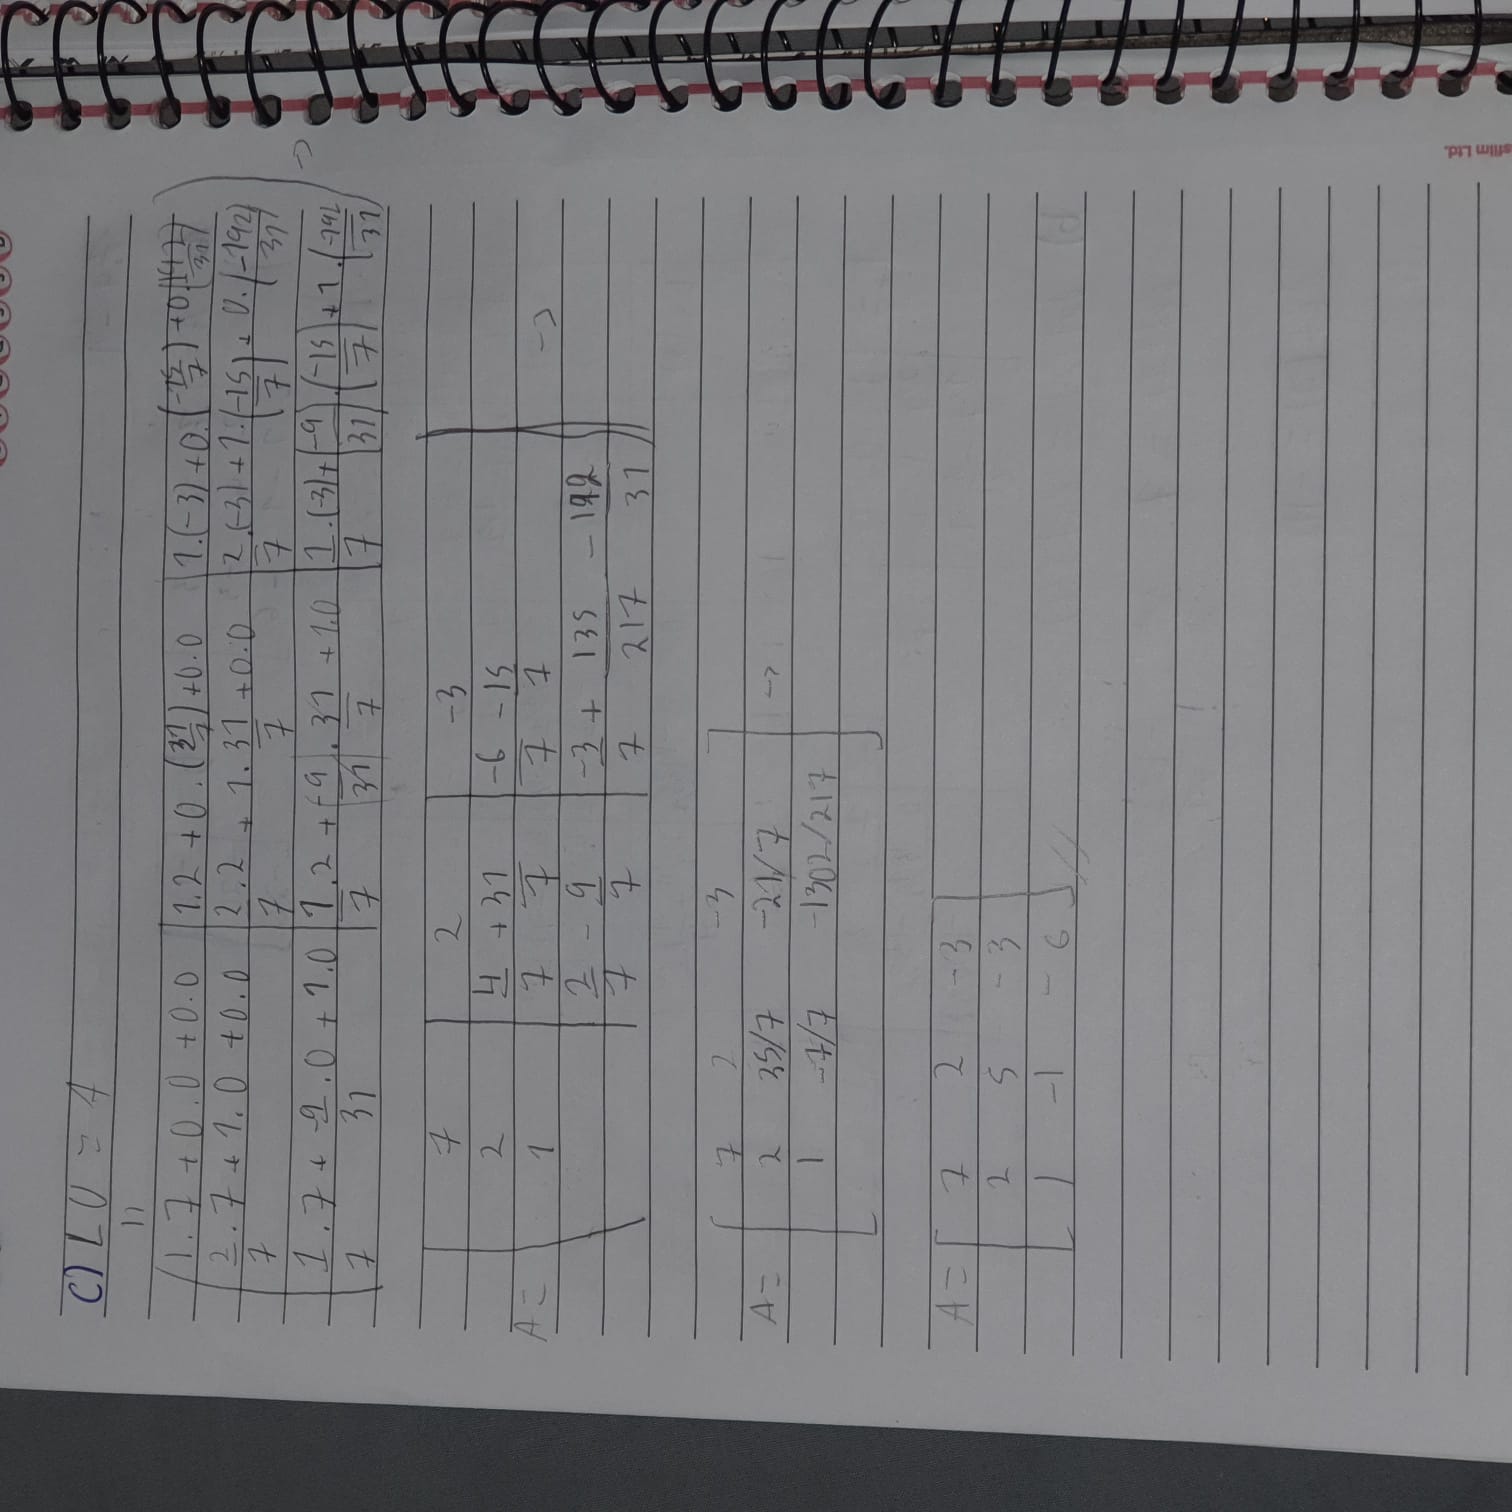 c) LU = A
=
1.7 + 0.0 + 0.0 | 1.2 + 0.(31/7) + 0.0 | 1.(-3) + 0.(-15/7) + 0.
2/7.7 + 1.0 + 0.0 | 2/7.2 + 1.31/7 + 0.0 | 2/7.(-3) + 1.(-15/7) + 0.(-192/31)
1/7.7 + -9/31.0 + 1.0 | 1/7.2 + (-9/31).31/7 + 1.0 | 1/7.(-3) + (-9/31).(-15/7) + 1.(-192/31) ->
7 | 2 | -3
2 | 4/7 + 31/7 | -6/7 - 15/7
A = 1 | 2/7 - 9/7 | -3/7 + 135/217 - 192/31 ->
7 2 -3
A = 2 35/7 -21/7 ->
1 -7/7 -1302/217
A = 7 2 -3
2 5 -3
1 -1 -6 //
film Ltd.